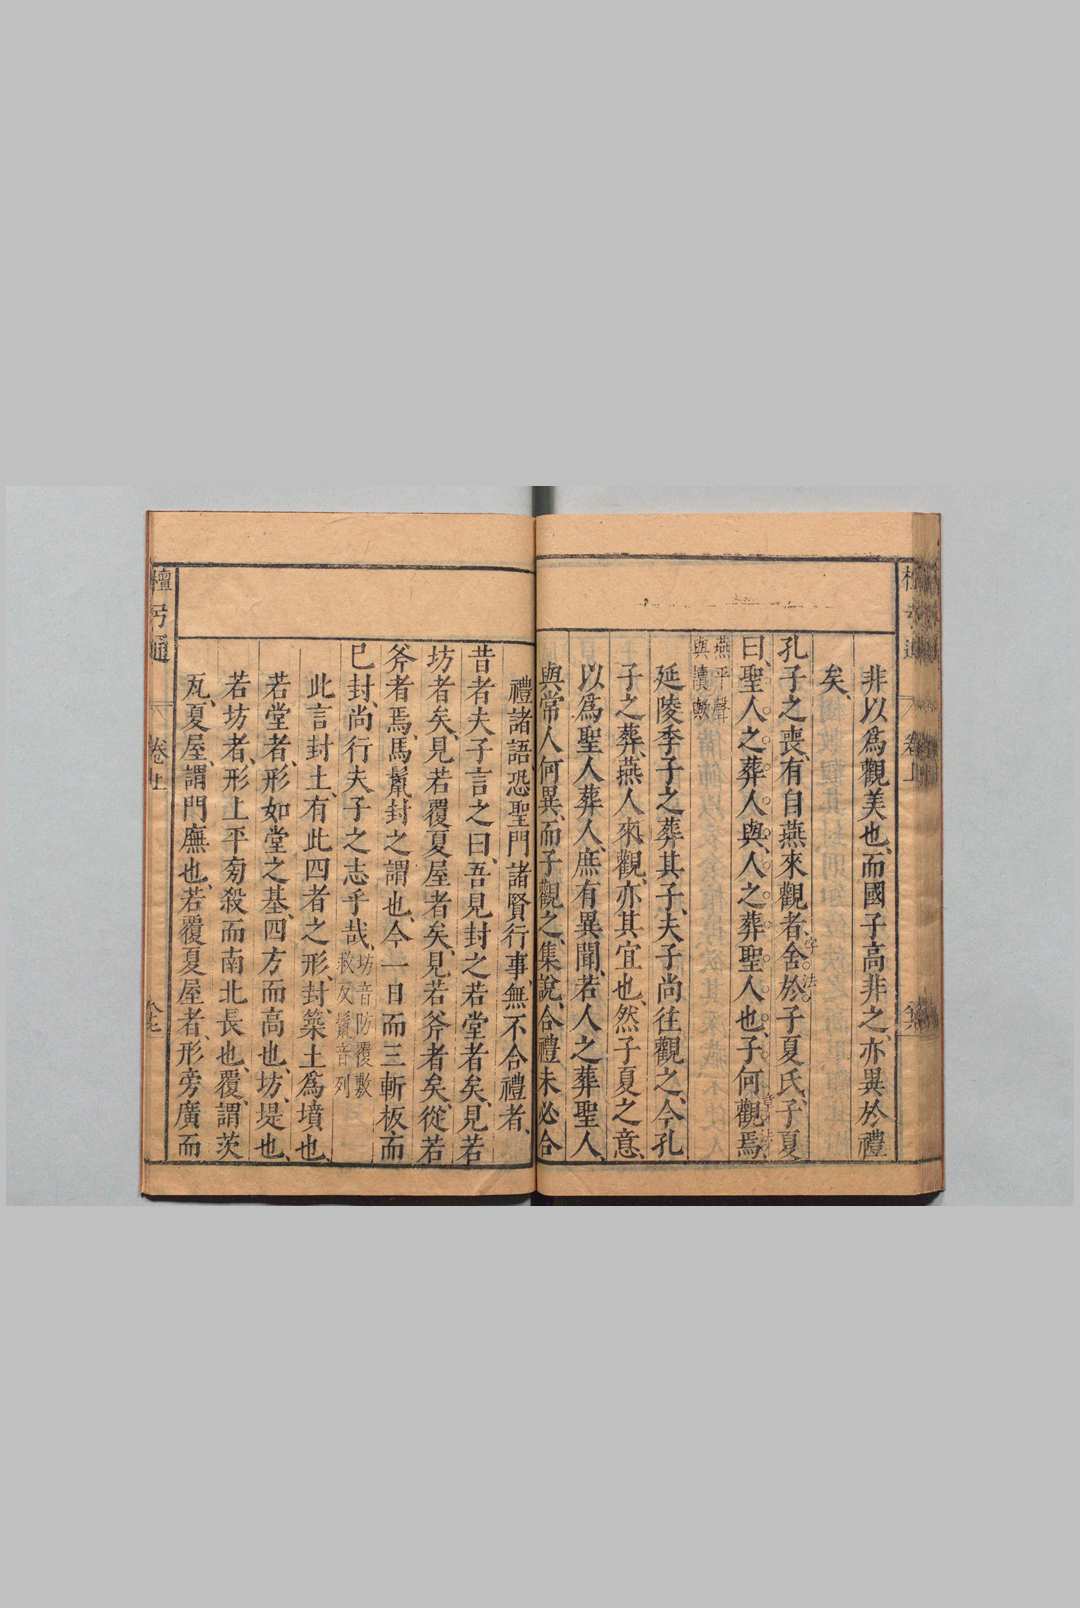 非以爲觀美也、而國子高非之、亦異於禮
矣、
孔子之喪、有自燕來觀者、舍於子夏氏、子夏
字法
曰、聖人之葬人與、人之葬聖人也、子何觀焉、
章法
燕平聲
與讀歟
延陵季子之葬其子、夫子尚往觀之、今孔
子之葬、燕人來觀、亦其宜也、然子夏之意、
以爲聖人葬人、庶有異聞、若人之葬聖人、
與常人何異、而子觀之、集說、合禮未必合
禮諸語、恐聖門諸賢行事、無不合禮者、
昔者夫子言之曰、吾見封之若堂者矣、見若
坊者矣、見若覆夏屋者矣、見若斧者矣、從若
斧者焉、馬鬛封之謂也、今一日而三斬板、而
已封、尚行夫子之志乎哉、
坊音防覆敷
救反鬛音列
此言封土、有此四者之形、封、築土爲墳也、
若堂者、形如堂之基、四方而高也、坊、堤也、
若坊者、形上平旁殺而南北長也、覆、謂茨
瓦、夏屋、謂門廡也、若覆夏屋者、形旁廣而
檀弓通
卷上